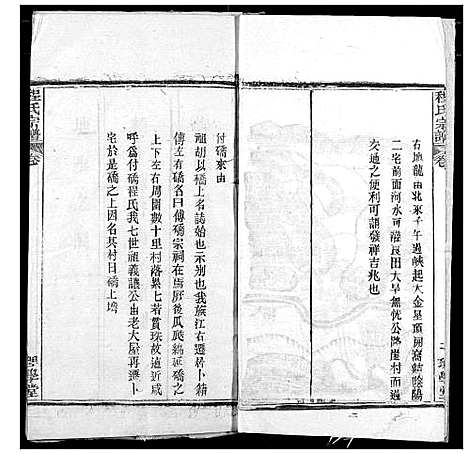 程氏宗譜
卷
右地龍由北來子午過峽起大金星頂開窩結陰陽
二宅前面河水可灌良田大旱無憂公路崖村而過
交通之便利可謂發祥吉兆也
付礄來由
祖胡以礄上名誌始也示別也我族江右遷居卜籍
傳左有礄名曰傅礄宗祠在焉厥後瓜瓞綿延礄之
上下左右周圍數十里村落纍七若貫珠故遠近咸
呼爲付礄程氏我七世祖義讓公由老大屋再遷卜
宅於是礄之上因名其村曰礄上塆
程氏宗譜
卷
理學堂